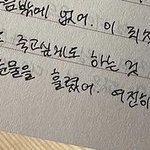 음밖에 없어. 이 직
죽고싶게도 하는 것
눈물을 흘렸어. 여전히